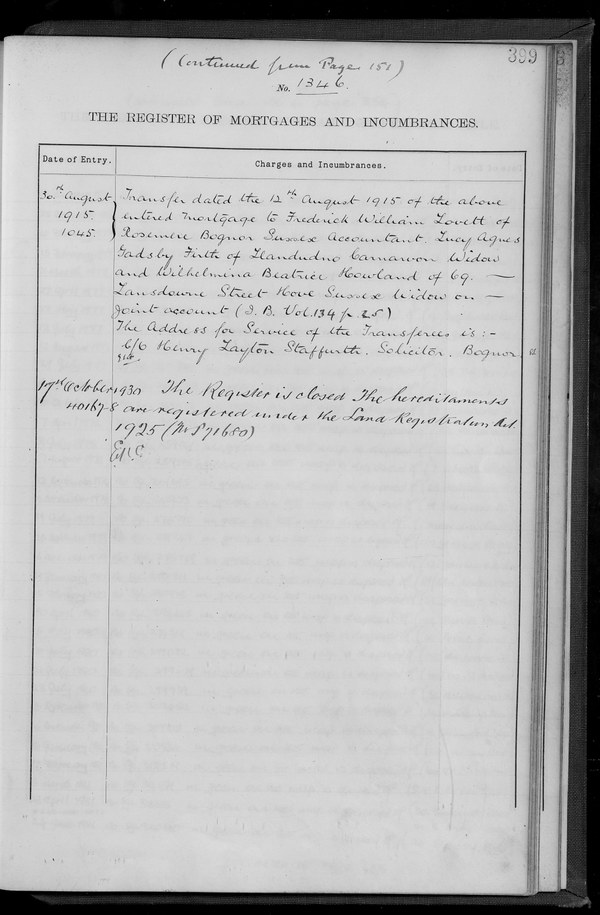 (Continued from Page 151)
399
No. 1346.
THE REGISTER OF MORTGAGES AND INCUMBRANCES.
Date of Entry.
Charges and Incumbrances.
30th August
1915.
1045.
Transfer dated the 12th August 1915 of the above
entered Mortgage to Frederick William Lovett of
Rosemere Bognor Sussex Accountant. Lucy Agnes
Gadsby Firth of Llandudno Carnarvon Widow
and Wilhelmina Beatrice Howland of 69. —
Lansdowne Street Hove Sussex Widow on —
joint account (I. B. Vol. 134 p. 25)
The Address for Service of the Transferees is :-
c/o Henry Layton Staffurth. Solicitor. Bognor.
17th October 1930
40167-8
The Register is closed The hereditaments
are registered under the Land Registration Act
1925